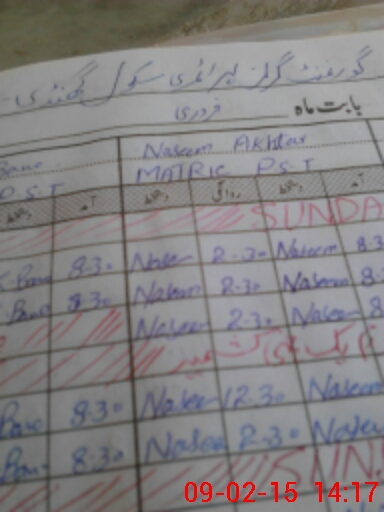 گورنمنٹ گرلز پرائمری سکول گھنڈی
بابت ماہ فروری
Bano Naseem Akhtar
P.S.T MATRIC P.S.T
دستخط آمد دستخط روانگی دستخط آمد
SUNDA
Bano 8-30 Naseem 2-30 Naseem 8-3
Bano 8-30 Naseem 2-30 Naseem 8
Naseem 2-30 Naseem 8
Bano 8-30 Naseem 12-30 Naseem
Bano 8-30 Naseem 2-30 Naseem
SUN
09-02-15 14:17